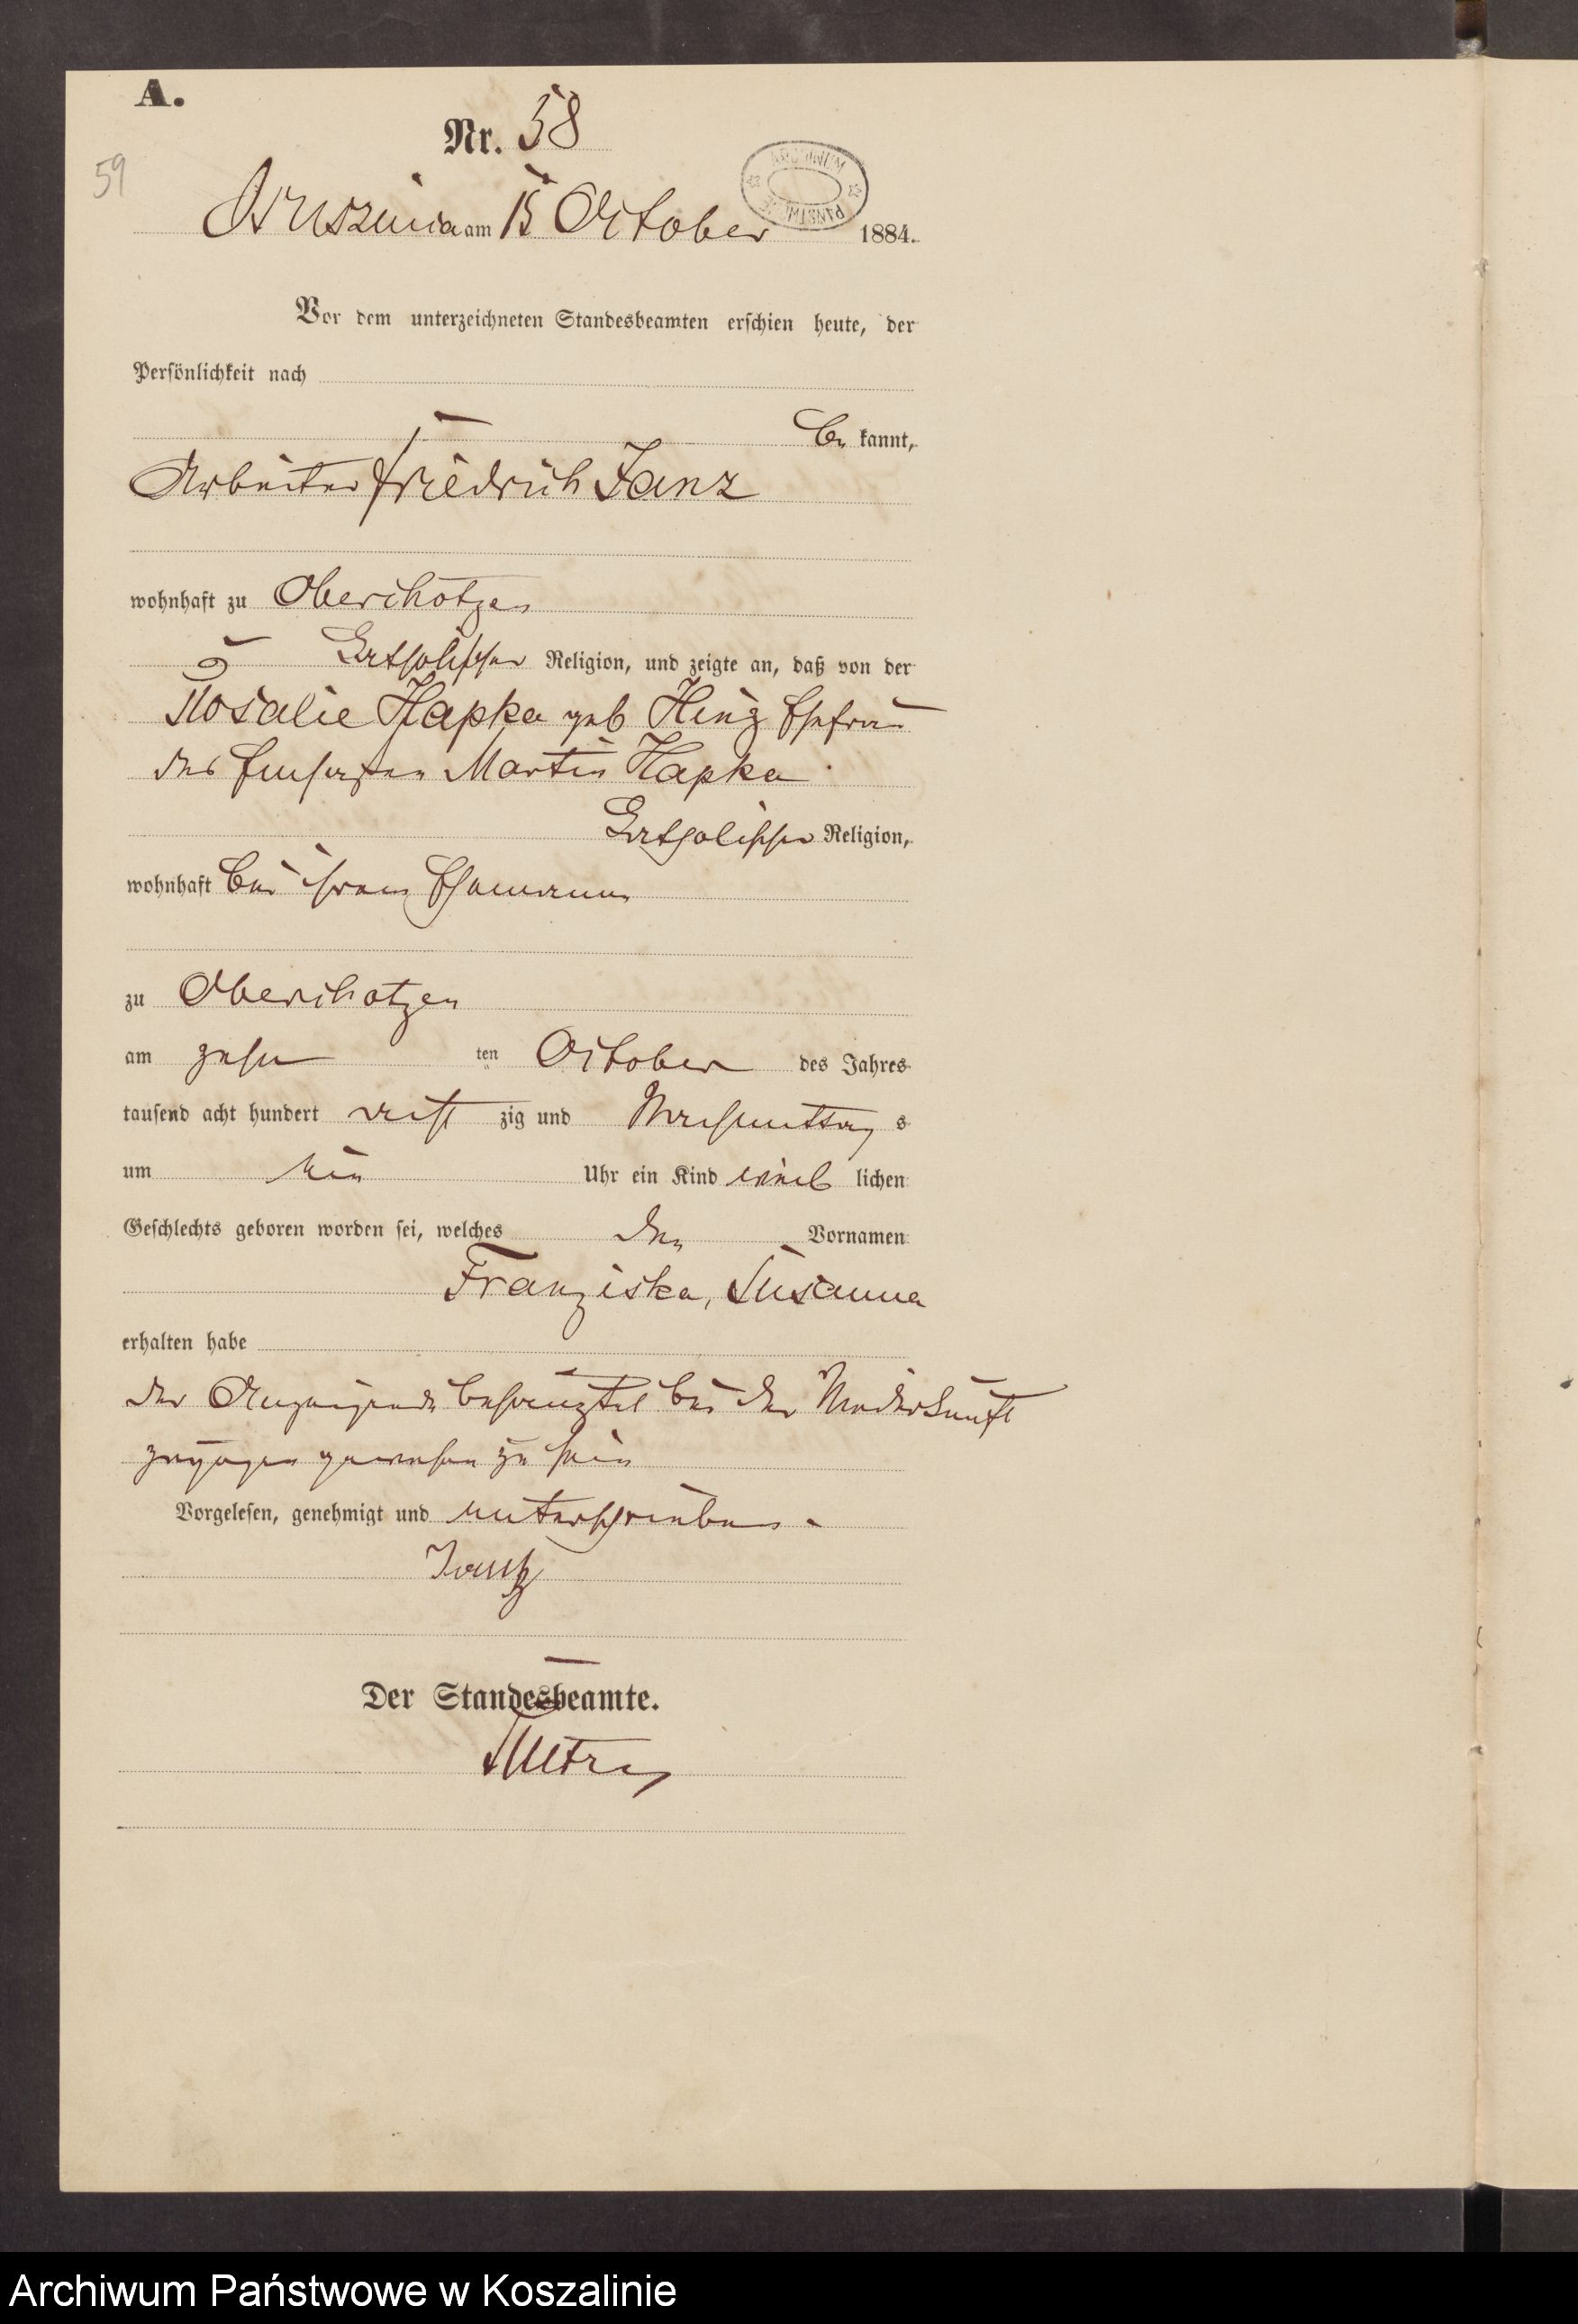 A.
Nr. 58
59
ARCHIWUM PAŃSTWOWE
am 15 October 1884.
Vor dem unterzeichneten Standesbeamten erschien heute, der
Persönlichkeit nach
be kannt,
Arbeiter Friedrich Janz
wohnhaft zu Oberchotzen
katholischer Religion, und zeigte an, daß von der
Rosalie Hapka geb Hinz Ehefrau
des Einsassen Martin Hapka
katholischer Religion,
wohnhaft bei ihrem Ehemann
zu Oberchotzen
am zehn ten October des Jahres
tausend acht hundert acht zig und Nachmittag s
um ein Uhr ein Kind weib lichen
Geschlechts geboren worden sei, welches den Vornamen
Franziska, Susanna
erhalten habe
der Anzeigende bei der Niederkunft
zugegen gewesen zu sein
Vorgelesen, genehmigt und unterschrieben.
Jantz
Der Standesbeamte.
Archiwum Państwowe w Koszalinie